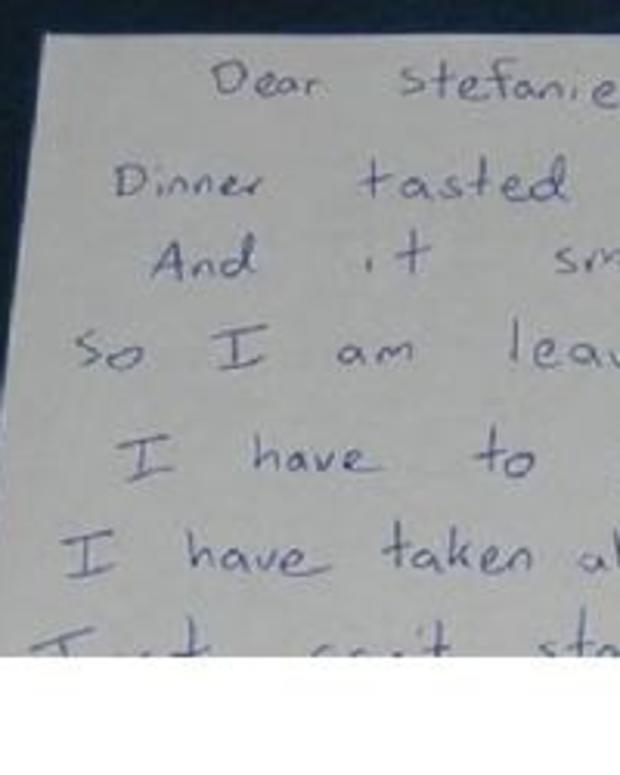 Dear Stefanie
Dinner tasted
And it sm
So I am leav
I have to
I have taken